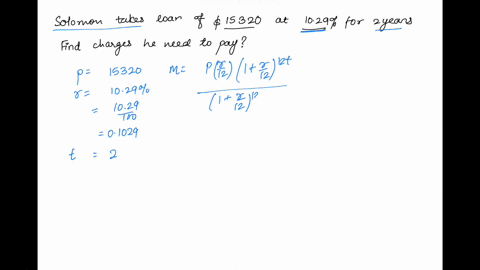 Solomon takes loan of $ 15320 at 10.29% for 2 years
Find charges he need to pay?
P = 15320
r = 10.29%
= 10.29/100
= 0.1029
t = 2
M = P(r/12)(1+r/12)^12t / (1+r/12)^12